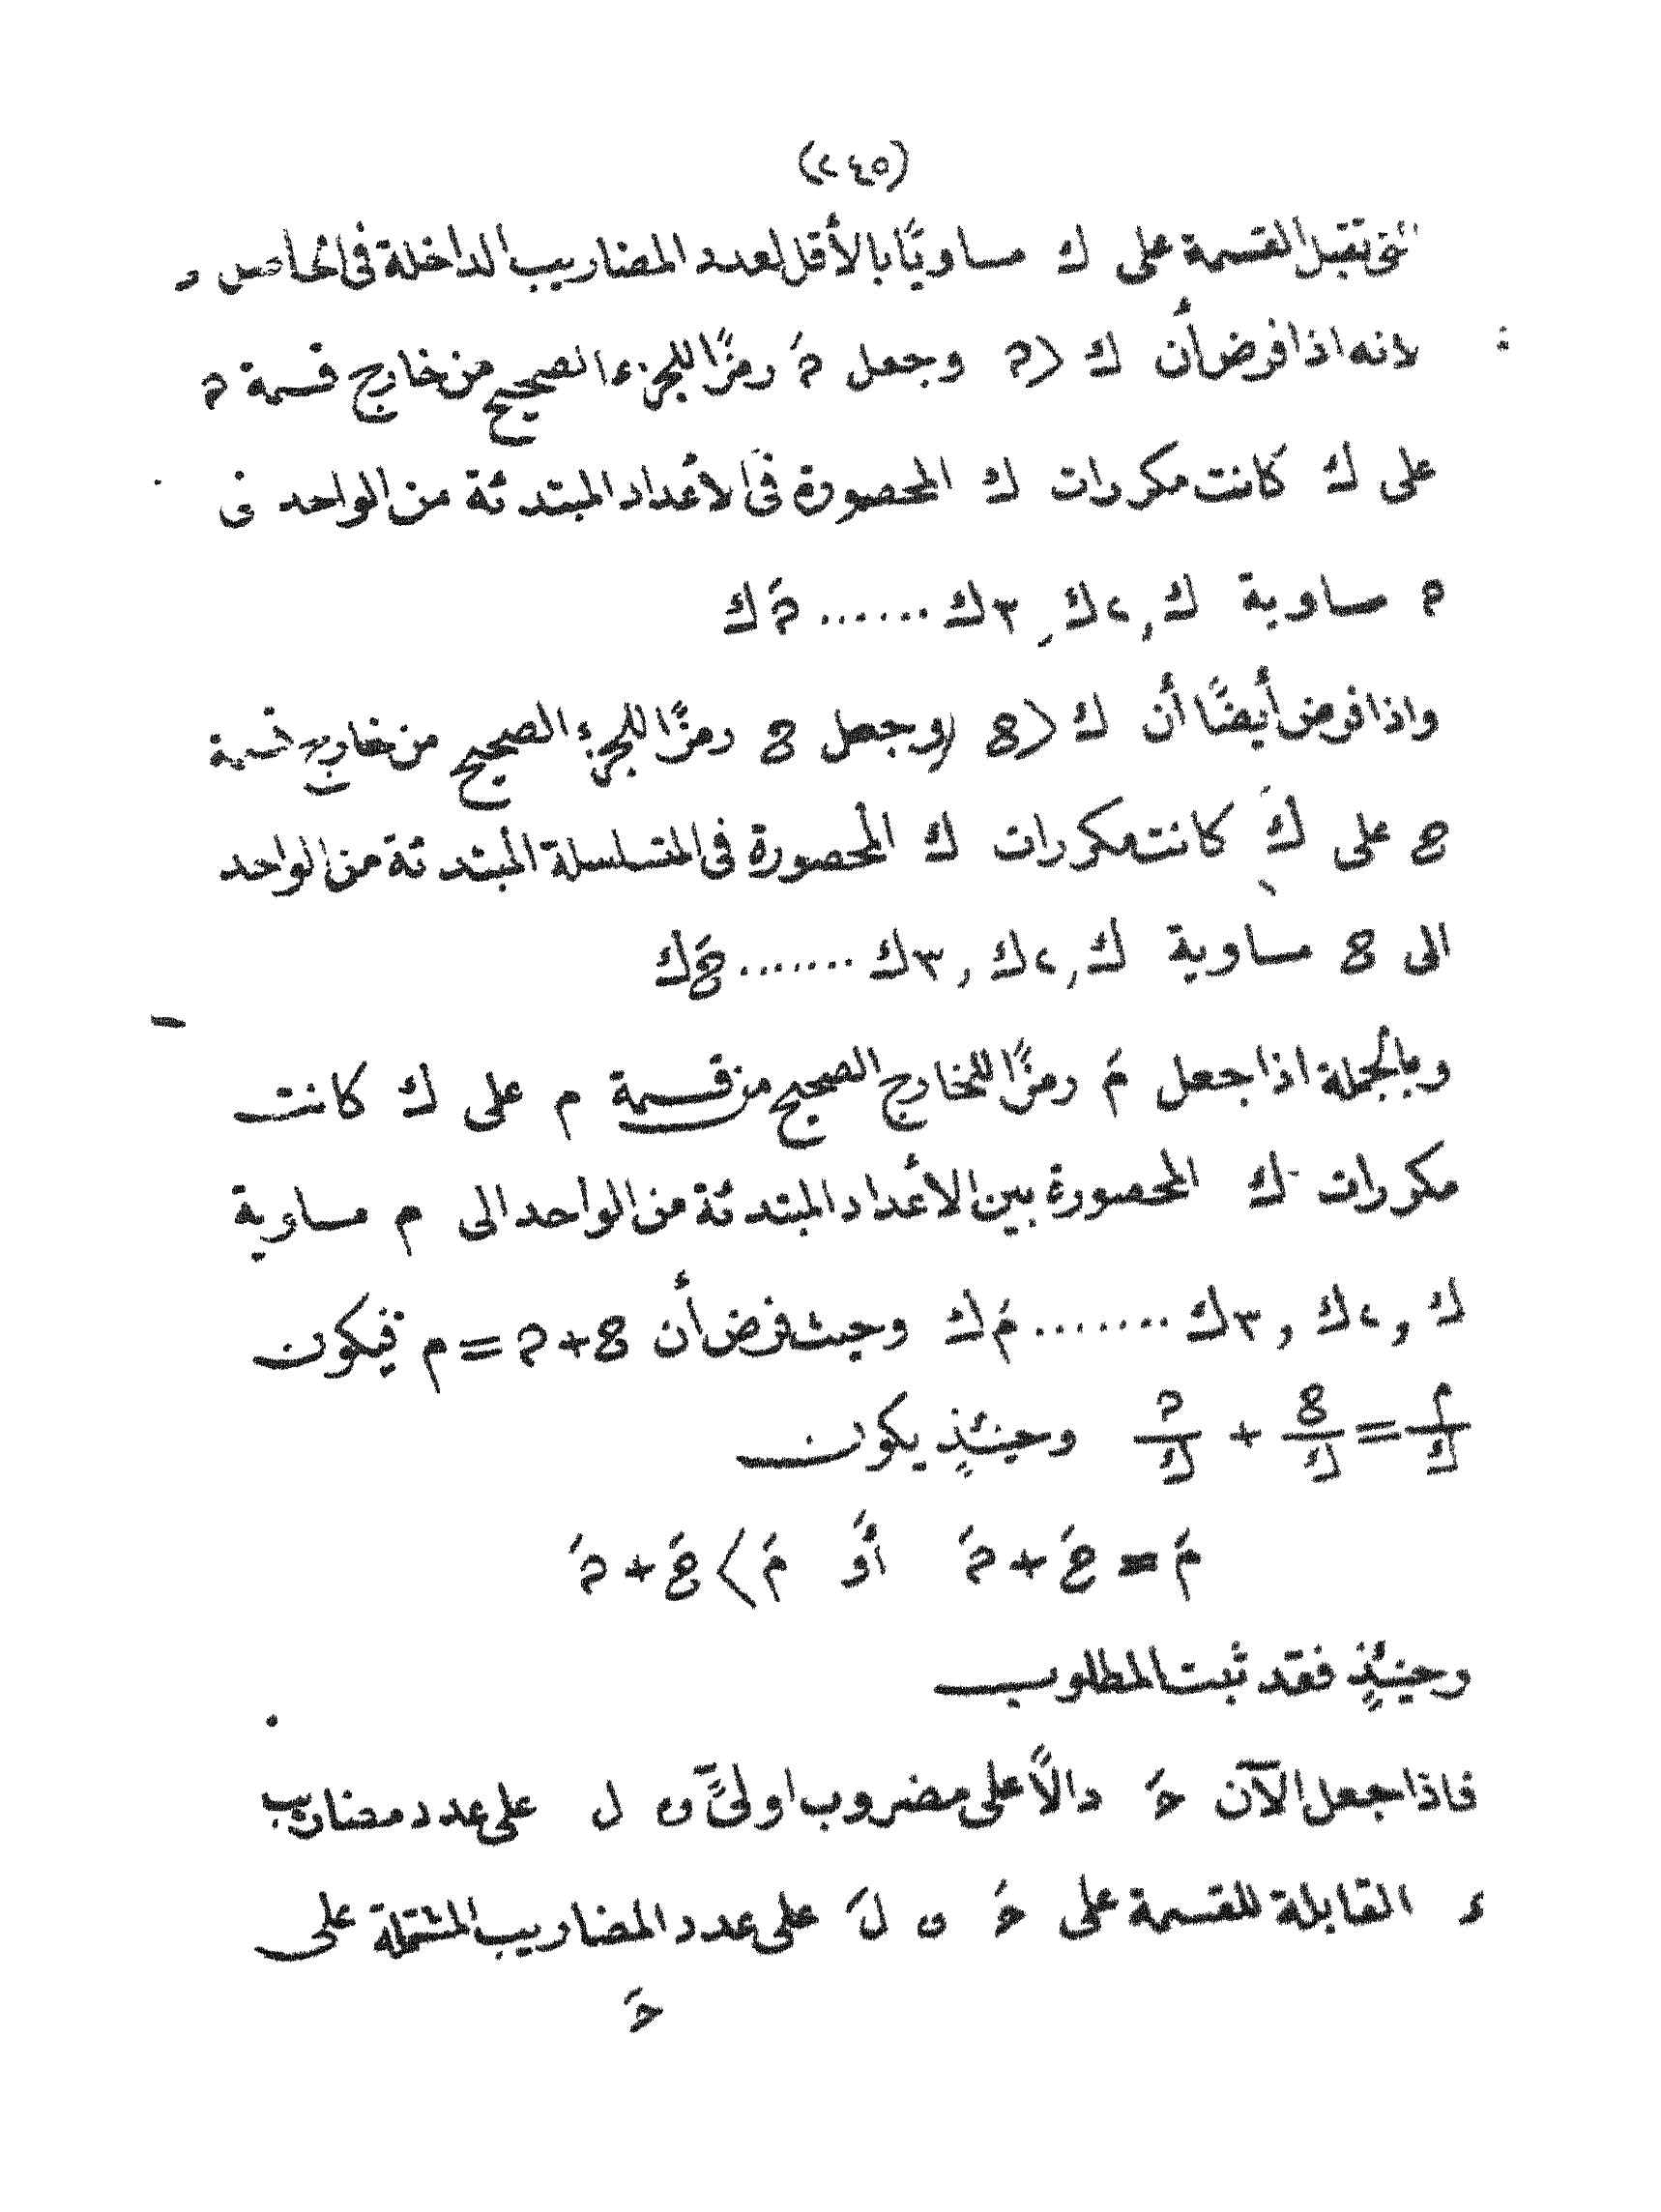 (٢٤٥)
التى تقبل القسمة على ك مساويًّا بالأقل لعدد المضاريب الداخلة فى الحاصل و
لانه اذا فرض أن ك < م وجعل مَ رمزًا للجزء الصحيح من خارج قسمة م
على ك كانت مكررات ك المحصورة فى الأعداد المبتدئة من الواحد فى
م مساوية ك , ٢ك , ٣ك ...... مَ ك
واذا فرض أيضًا أن ك < ع وجعل ع رمزًا للجزء الصحيح من خارج قسمة
ع على ك كانت مكررات ك المحصورة فى المتسلسلة المبتدئة من الواحد
الى ع مساوية ك , ٢ك , ٣ك ....... عَ ك
وبالجملة اذا جعل مَ رمزًا للخارج الصحيح من قسمة م على ك كانت
مكررات ك المحصورة بين الأعداد المبتدئة من الواحد الى م مساوية
ك , ٢ك , ٣ك ....... مَ ك وحيث فرض أن ع + م = م فيكون
م/ك = ع/ك + م/ك وحينئذٍ يكون
مَ = عَ + مَ أو مَ > عَ + مَ
وحينئذٍ فقد ثبت المطلوب
فاذا جعل الآن حَ دالاً على مضروب اولىً و ل على عدد مضاريب
ء القابلة للقسمة على حَ و لَ على عدد المضاريب المشتملة على
حَ